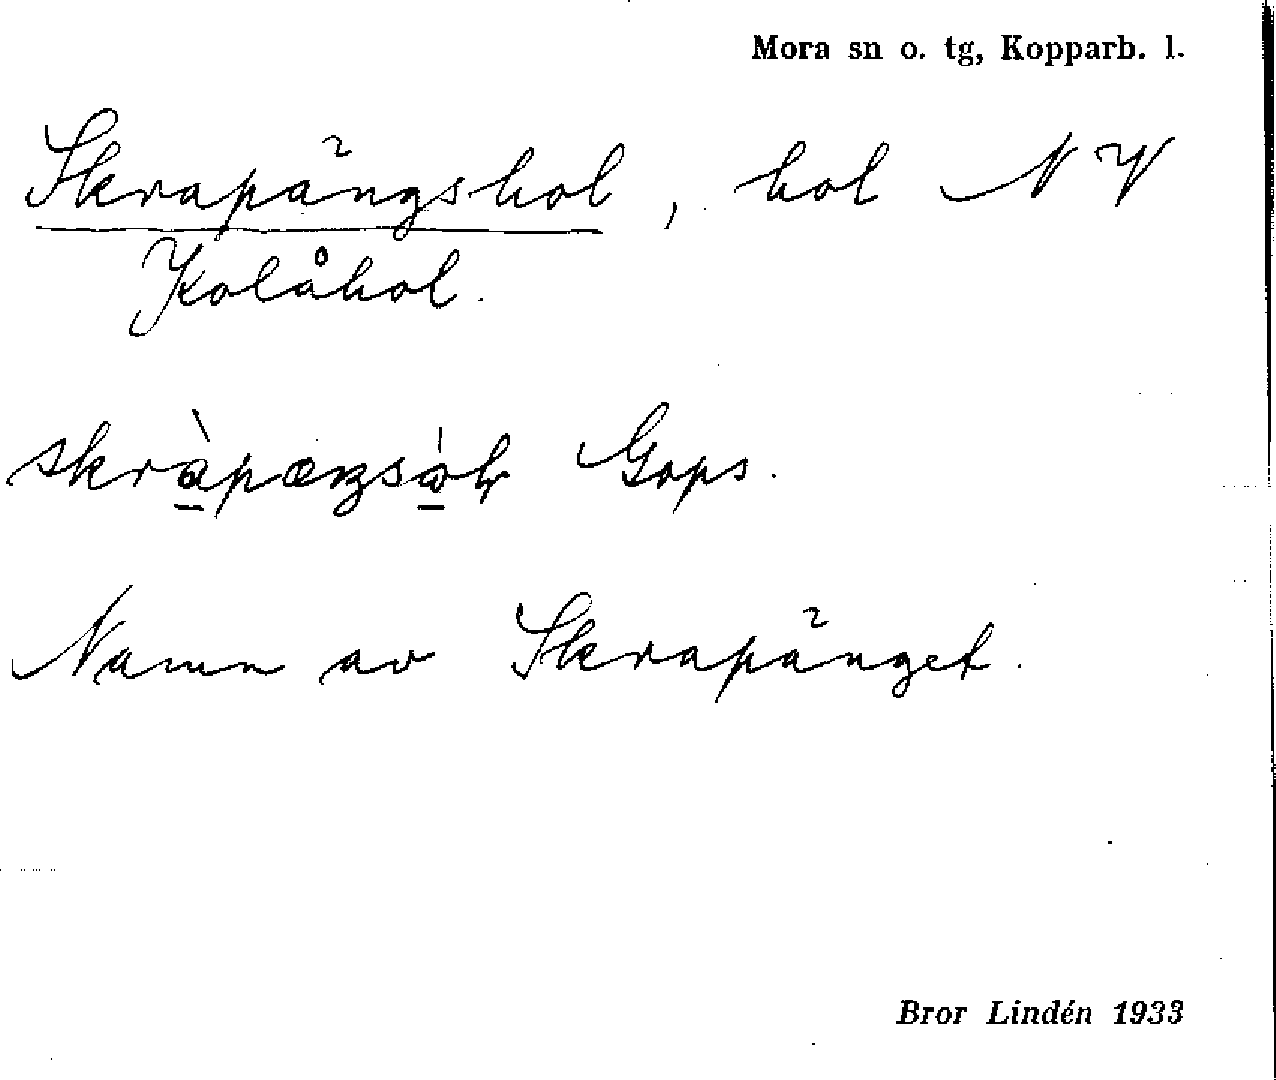 Mora sn o. tg, Kopparb. l.
Skrapängshol, hol NV
Kolåhol.
skràpæŋsòɫ Gops.
Namn av Skrapänget.
Bror Lindén 1933